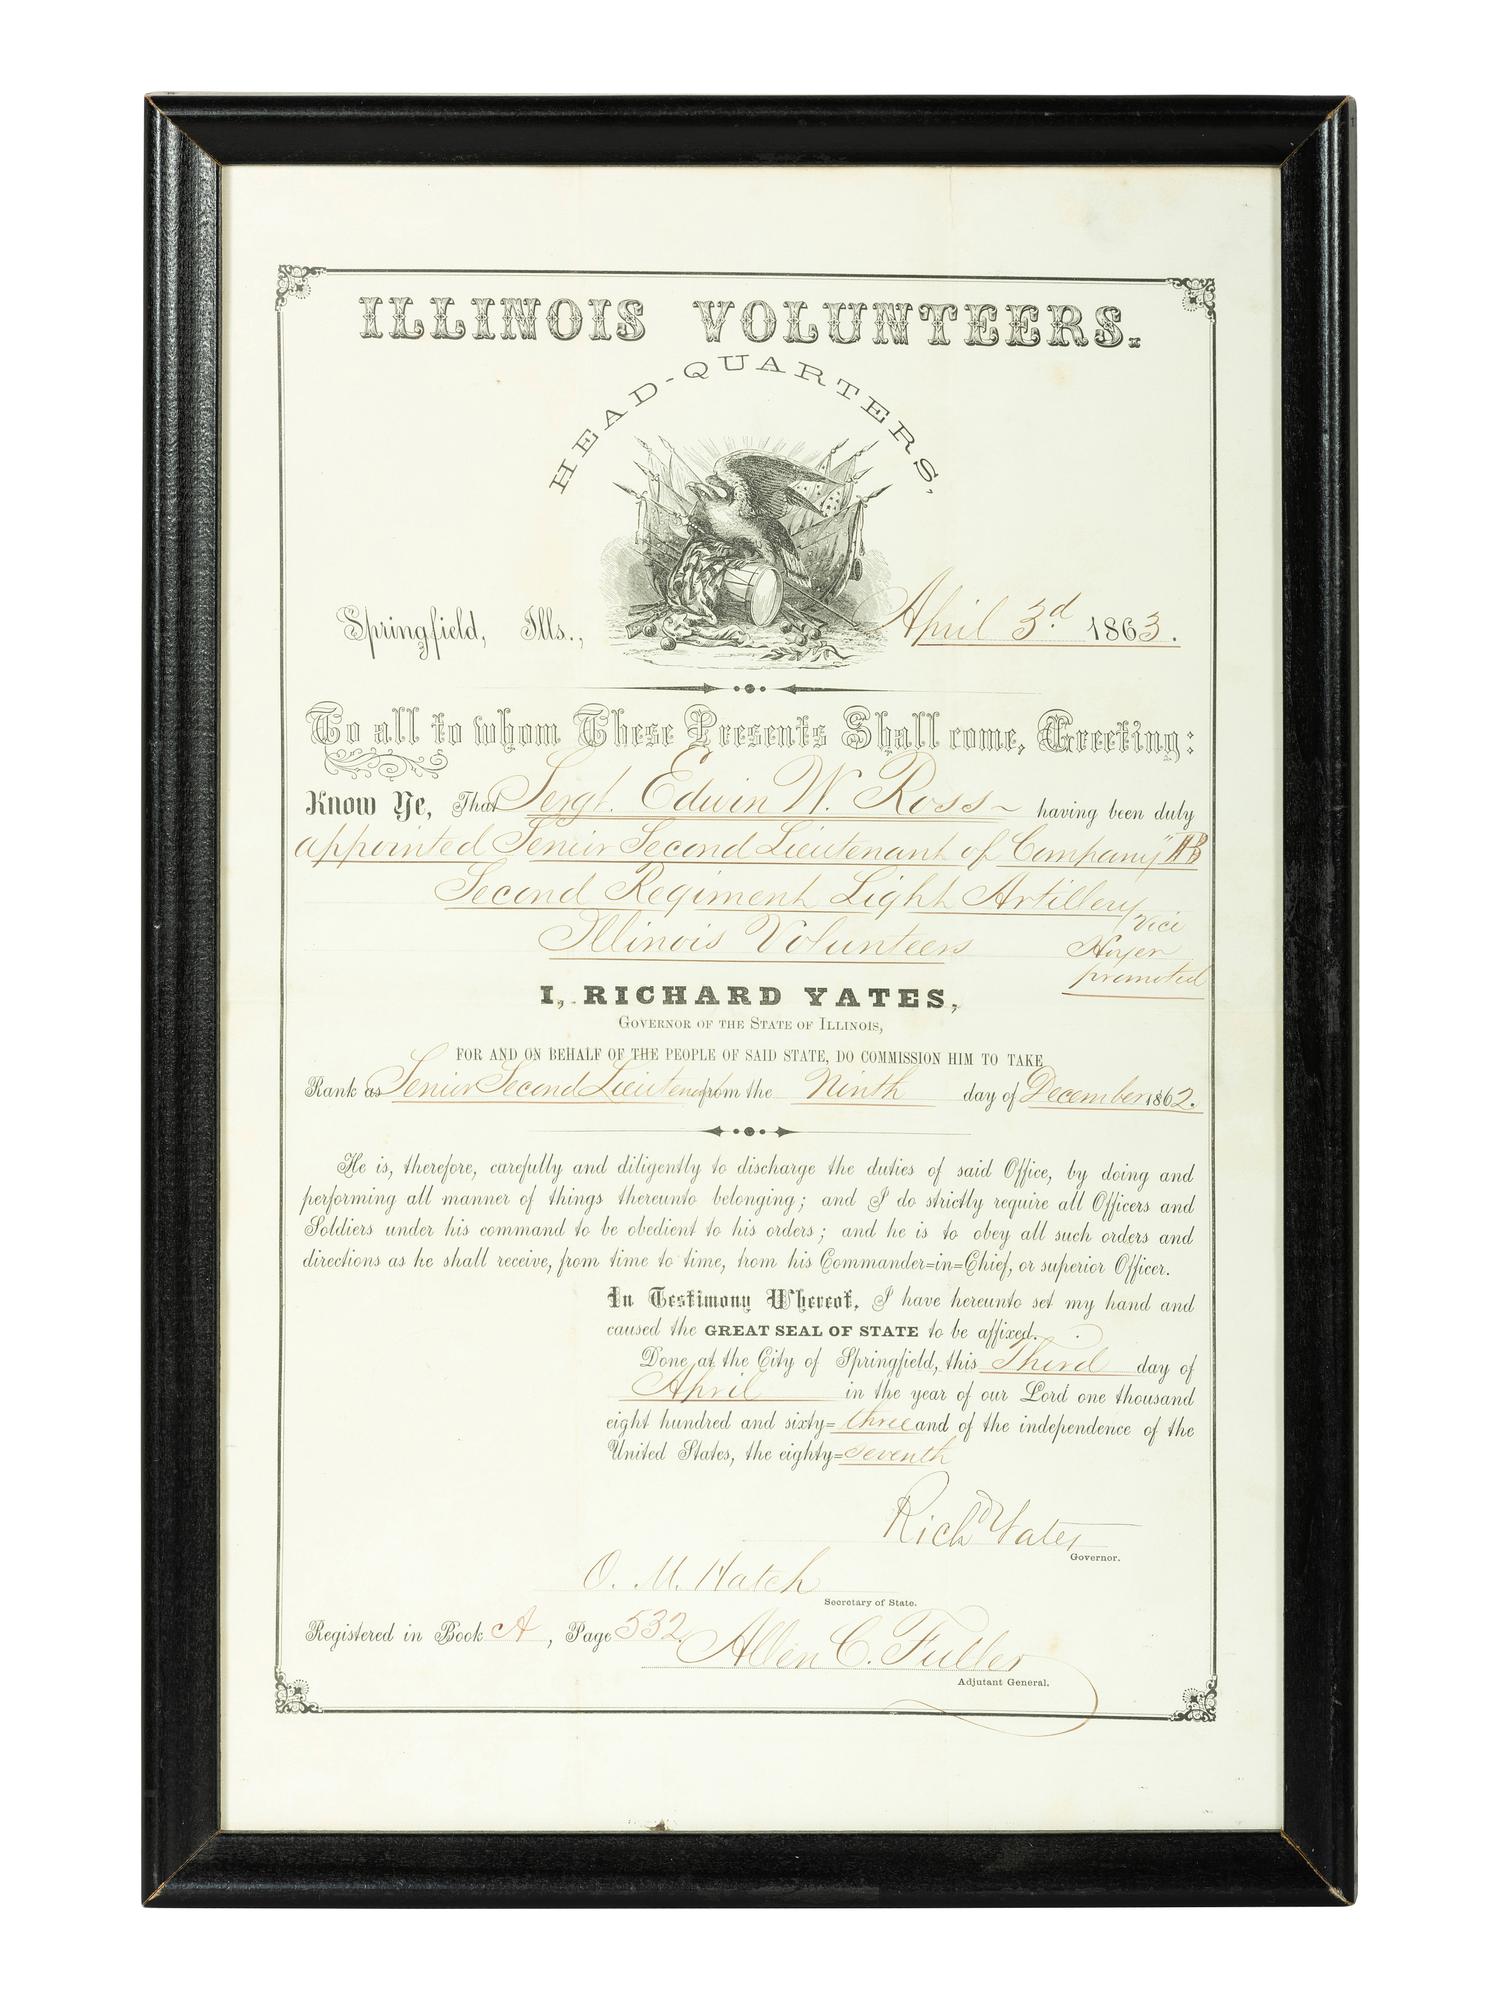 ILLINOIS VOLUNTEERS.
HEAD-QUARTERS,
Springfield, Ills., April 3d. 1863.
To all to whom These Presents Shall come, Greeting:
Know Ye, That Sergt. Edwin W. Ross having been duly
appointed Senior Second Lieutenant of Company
Second Regiment Light Artillery
Illinois Volunteers
Vice
promoted
I, RICHARD YATES,
GOVERNOR OF THE STATE OF ILLINOIS,
FOR AND ON BEHALF OF THE PEOPLE OF SAID STATE, DO COMMISSION HIM TO TAKE
Rank as Senior Second Lieutenant from the Ninth day of December 1862.
He is, therefore, carefully and diligently to discharge the duties of said Office, by doing and
performing all manner of things thereunto belonging; and I do strictly require all Officers and
Soldiers under his command to be obedient to his orders; and he is to obey all such orders and
directions as he shall receive, from time to time, from his Commander=in=Chief, or superior Officer.
In Testimony Whereof, I have hereunto set my hand and
caused the GREAT SEAL OF STATE to be affixed.
Done at the City of Springfield, this Third day of
April in the year of our Lord one thousand
eight hundred and sixty=three and of the independence of the
United States, the eighty=seventh
Richd Yates
Governor.
O. M. Hatch
Secretary of State.
Registered in Book A, Page 532.
Allen C. Fuller
Adjutant General.